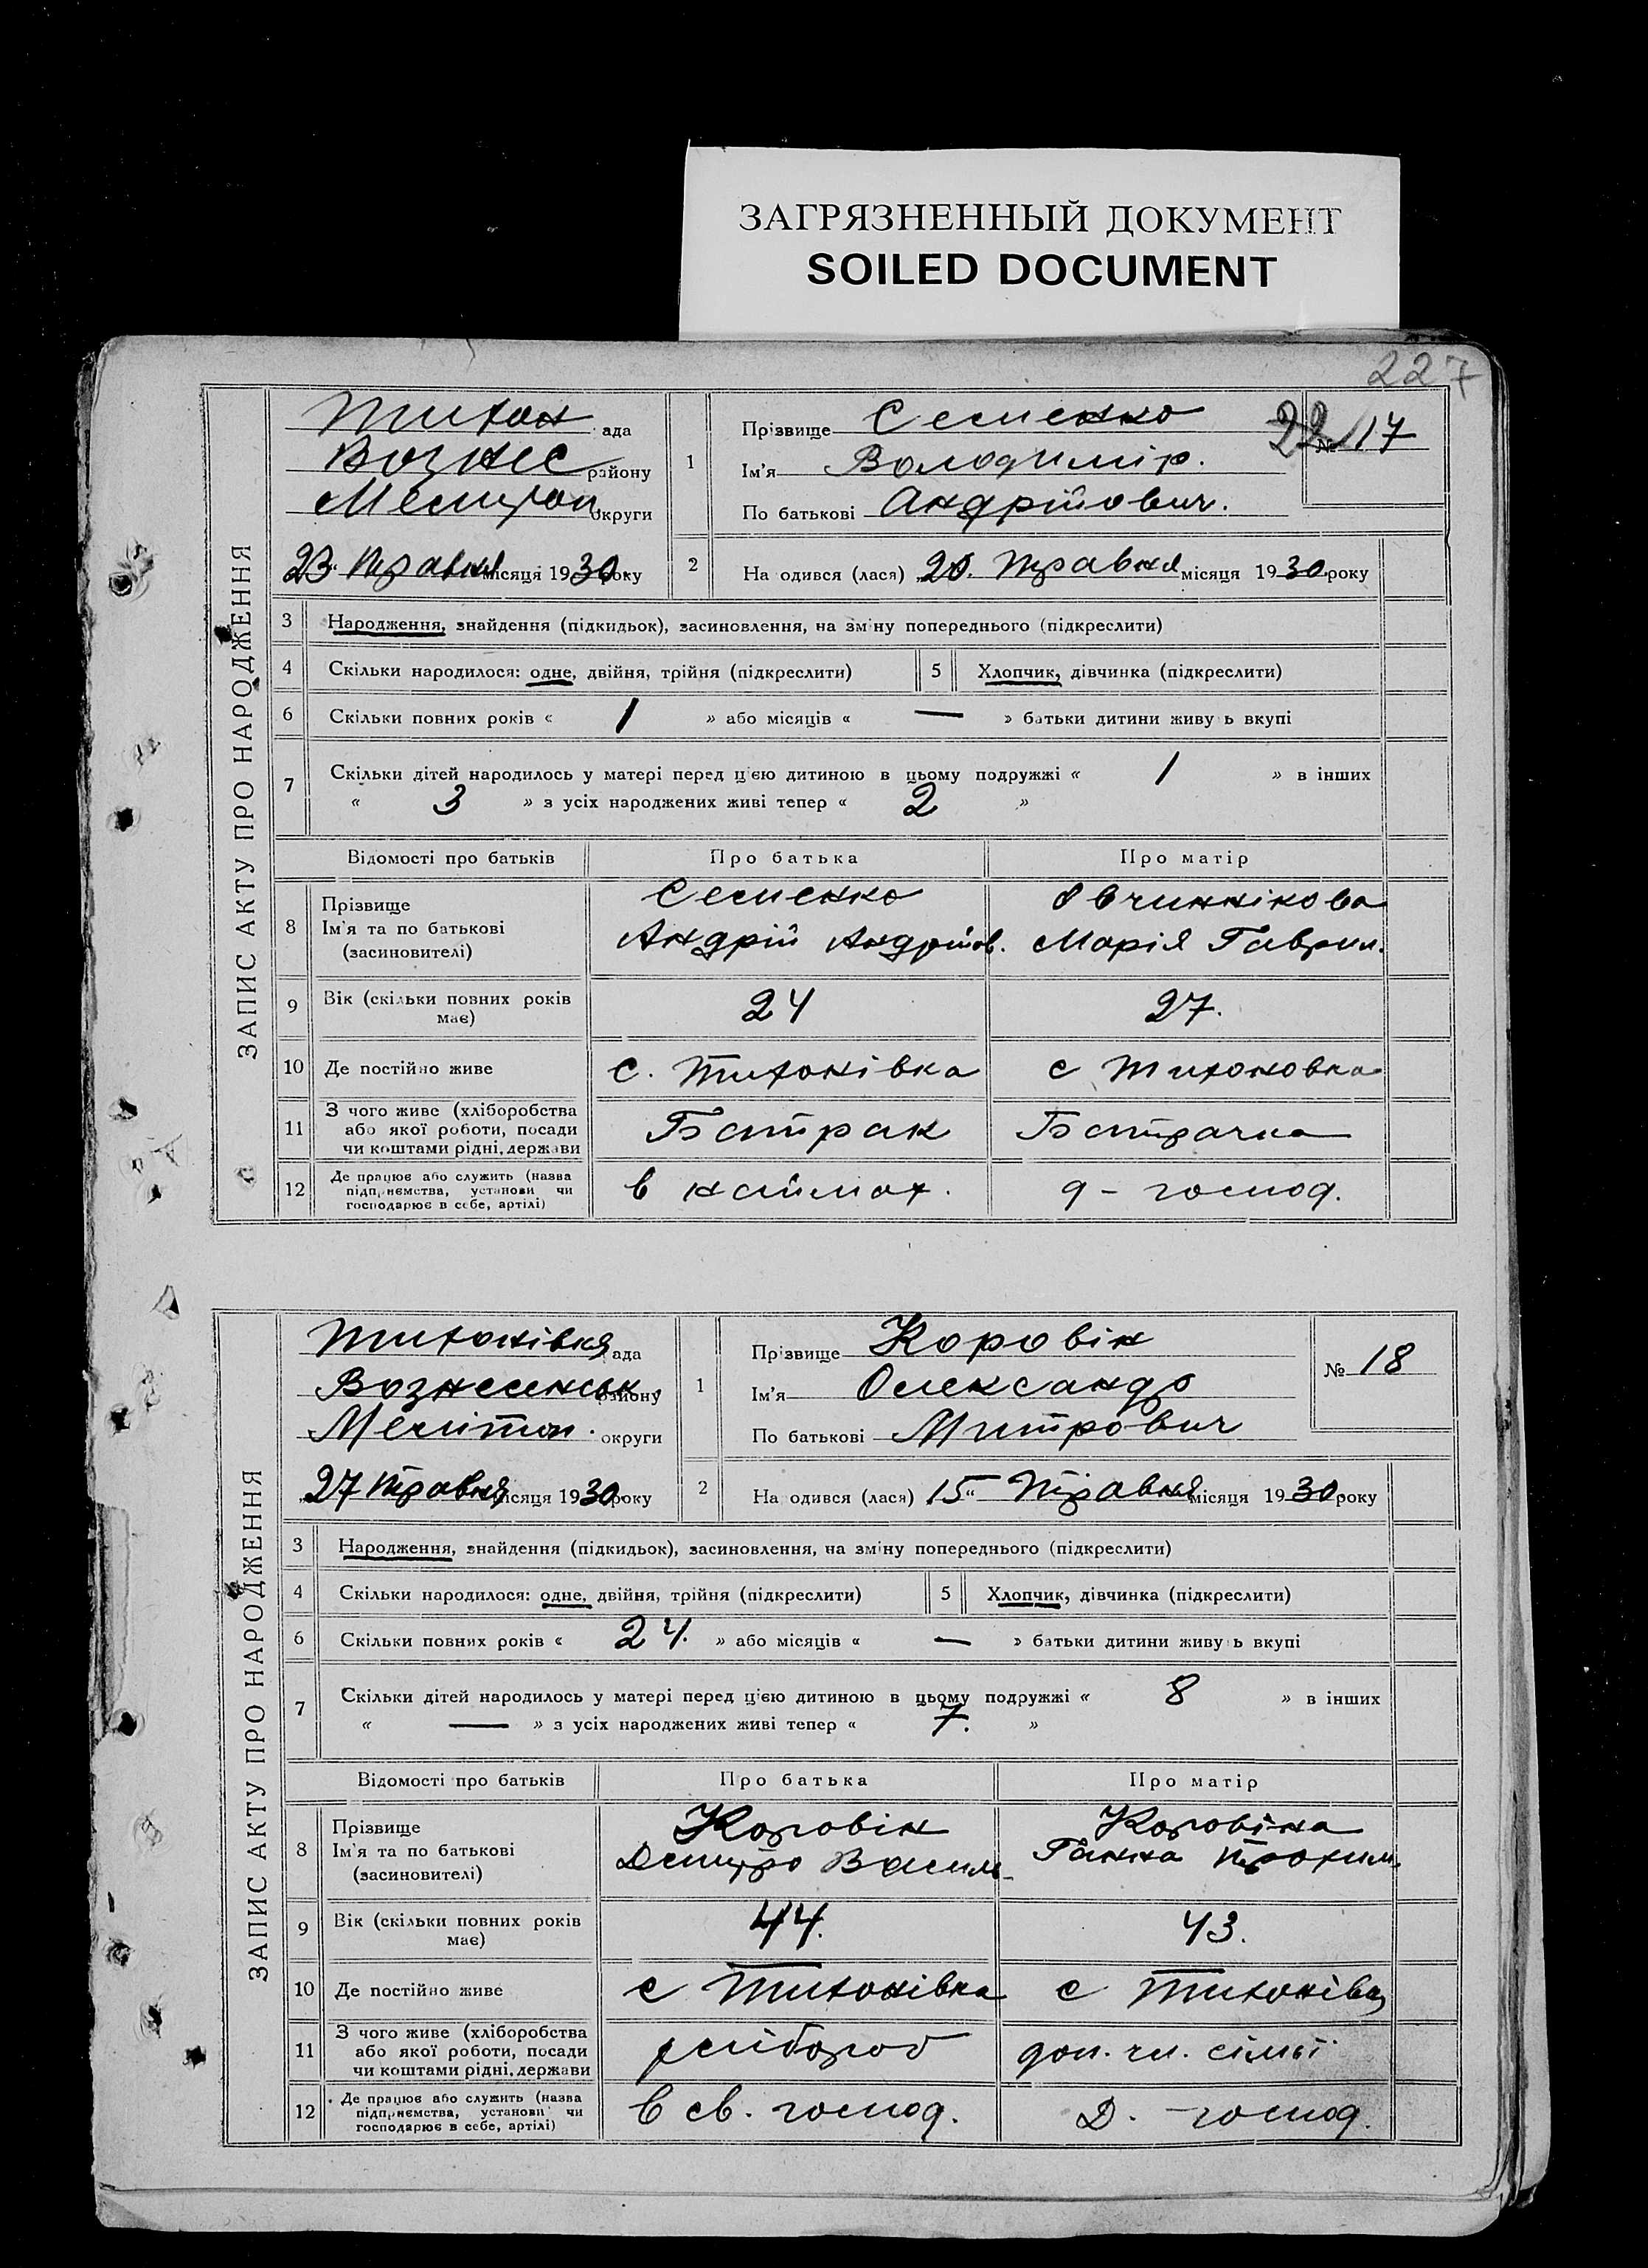 ЗАГРЯЗНЕННЫЙ ДОКУМЕНТ
SOILED DOCUMENT
227
ЗАПИС АКТУ ПРО НАРОДЖЕННЯ
Тихон ада
Вознес району
Меліт округи
23 Травня місяця 1930 року
1
Прізвище Семенко
Ім'я Володимір.
По батькові Андрійович.
22 № 17
2 На одився (лася) 20. Травня місяця 1930 року
3 Народження, знайдення (підкидьок), засиновлення, на зміну попереднього (підкреслити)
4 Скільки народилося: одне, двійня, трійня (підкреслити) 5 Хлопчик, дівчинка (підкреслити)
6 Скільки повних років « 1 » або місяців « — » батьки дитини живу ь вкупі
7 Скільки дітей народилось у матері перед цією дитиною в цьому подружжі « 1 » в інших
« 3 » з усіх народжених живі тепер « 2 »
Відомості про батьків Про батька Про матір
8 Прізвище Семенко Овчиннікова
Ім'я та по батькові Андрій Андрійов. Марія Гаврил.
(засиновителі)
9 Вік (скільки повних років має) 24 27.
10 Де постійно живе с. Тихонівка с Тихоновка
11 З чого живе (хліборобства або якої роботи, посади чи коштами рідні, держави Батрак Батрачка
12 Де працює або служить (назва підприємства, установи чи господарює в себе, артілі) в наймах. д - господ.
ЗАПИС АКТУ ПРО НАРОДЖЕННЯ
Тихонівка ада
Вознесенськ. району
Мелітоп. округи
„27 Травня місяця 1930 року
1
Прізвище Коровін
Ім'я Олександр
По батькові Митрович
№ 18
2 На одився (лася) 15“ Травня місяця 1930 року
3 Народження, знайдення (підкидьок), засиновлення, на зміну попереднього (підкреслити)
4 Скільки народилося: одне, двійня, трійня (підкреслити) 5 Хлопчик, дівчинка (підкреслити)
6 Скільки повних років « 24. » або місяців « — » батьки дитини живу ь вкупі
7 Скільки дітей народилось у матері перед цією дитиною в цьому подружжі « 8 » в інших
« — » з усіх народжених живі тепер « 7. »
Відомості про батьків Про батька Про матір
8 Прізвище Коровін Коровіна
Ім'я та по батькові Дмитро Васил. Ганна Трохим.
(засиновителі)
9 Вік (скільки повних років має) 44. 43.
10 Де постійно живе с Тихонівка с Тихонівка
11 З чого живе (хліборобства або якої роботи, посади чи коштами рідні, держави хлібороб доп. чл. сімьї
12 Де працює або служить (назва підприємства, установи чи господарює в себе, артілі) в св. господ. Д. - господ.